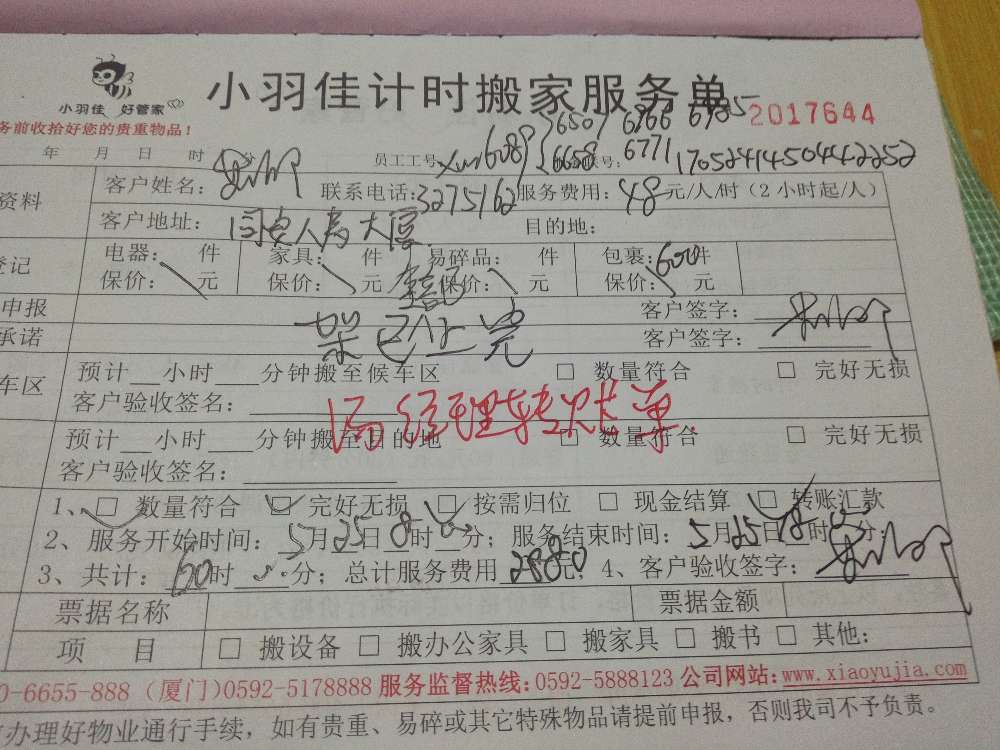 小羽佳 好管家
小羽佳计时搬家服务单
2017644
务前收拾好您的贵重物品！
年 月 日 时 分 员工工号 6089 6507 6766 6985
6658 6771 17052414504442252
资料 客户姓名： 联系电话：3275162 服务费用：48元/人/时（2小时起/人）
客户地址： 人寿大厦 目的地：
登记 电器： 件 家具： 件 易碎品： 件 包裹：600件
保价： 元 保价： 元 保价： 元 保价： 元
申报 客户签字：
承诺 客户签字：
车区 预计__小时___分钟搬至候车区 □ 数量符合 □ 完好无损
客户验收签名：
经理转账单
预计__小时___分钟搬至目的地 □ 数量符合 □ 完好无损
客户验收签名：
1、□ 数量符合 □ 完好无损 □ 按需归位 □ 现金结算 □ 转账汇款
2、服务开始时间：5月25日8时__分；服务结束时间：5月25日18时__分；
3、共计：60时__分；总计服务费用2880元；4、客户验收签字：
票据名称 票据金额
项 目 □ 搬设备 □ 搬办公家具 □ 搬家具 □ 搬书 □ 其他：
0-6655-888（厦门）0592-5178888 服务监督热线：0592-5888123 公司网站：www.xiaoyujia.com
办理好物业通行手续，如有贵重、易碎或其它特殊物品请提前申报，否则我司不予负责。